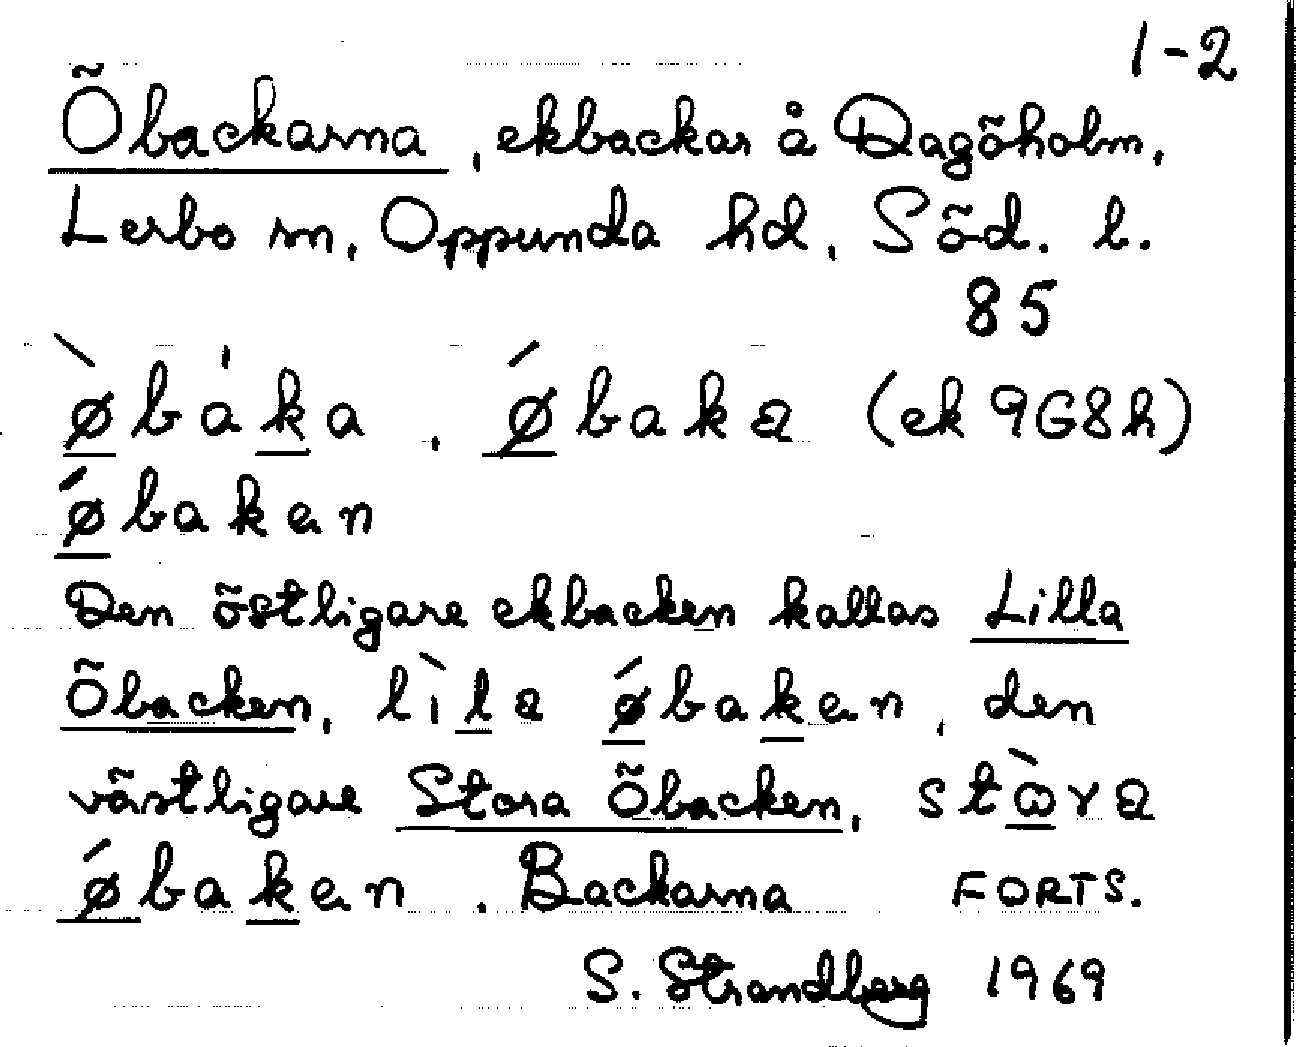 1-2
Öbackarna, ekbackar å Dagöholm,
Lerbo sn, Oppunda hd, Söd. l.
85
ø̀båka, ǿbaka (ek 9G8h)
ǿbaken
Den östligare ekbacken kallas Lilla
Öbacken, lìla ǿbaken, den
västligare Stora Öbacken, stὼra
ǿbaken. Backarna FORTS.
S. Strandberg 1969